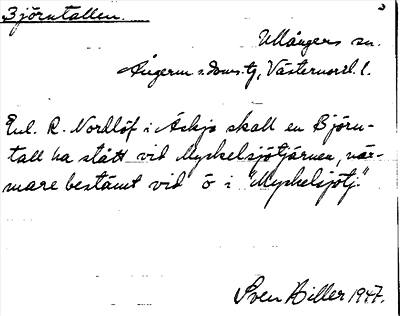 Björntallen.
3
Ullångers sn.
Ångerm s. doms. tg, Västernorrl. l.
Enl. R. Nordlöf i Äskja skall en Björn-
tall ha stått vid Myckelsjötjärnen, när-
mare bestämt vid ö i "Myckelsjötj."
Sven Hiller 1947.